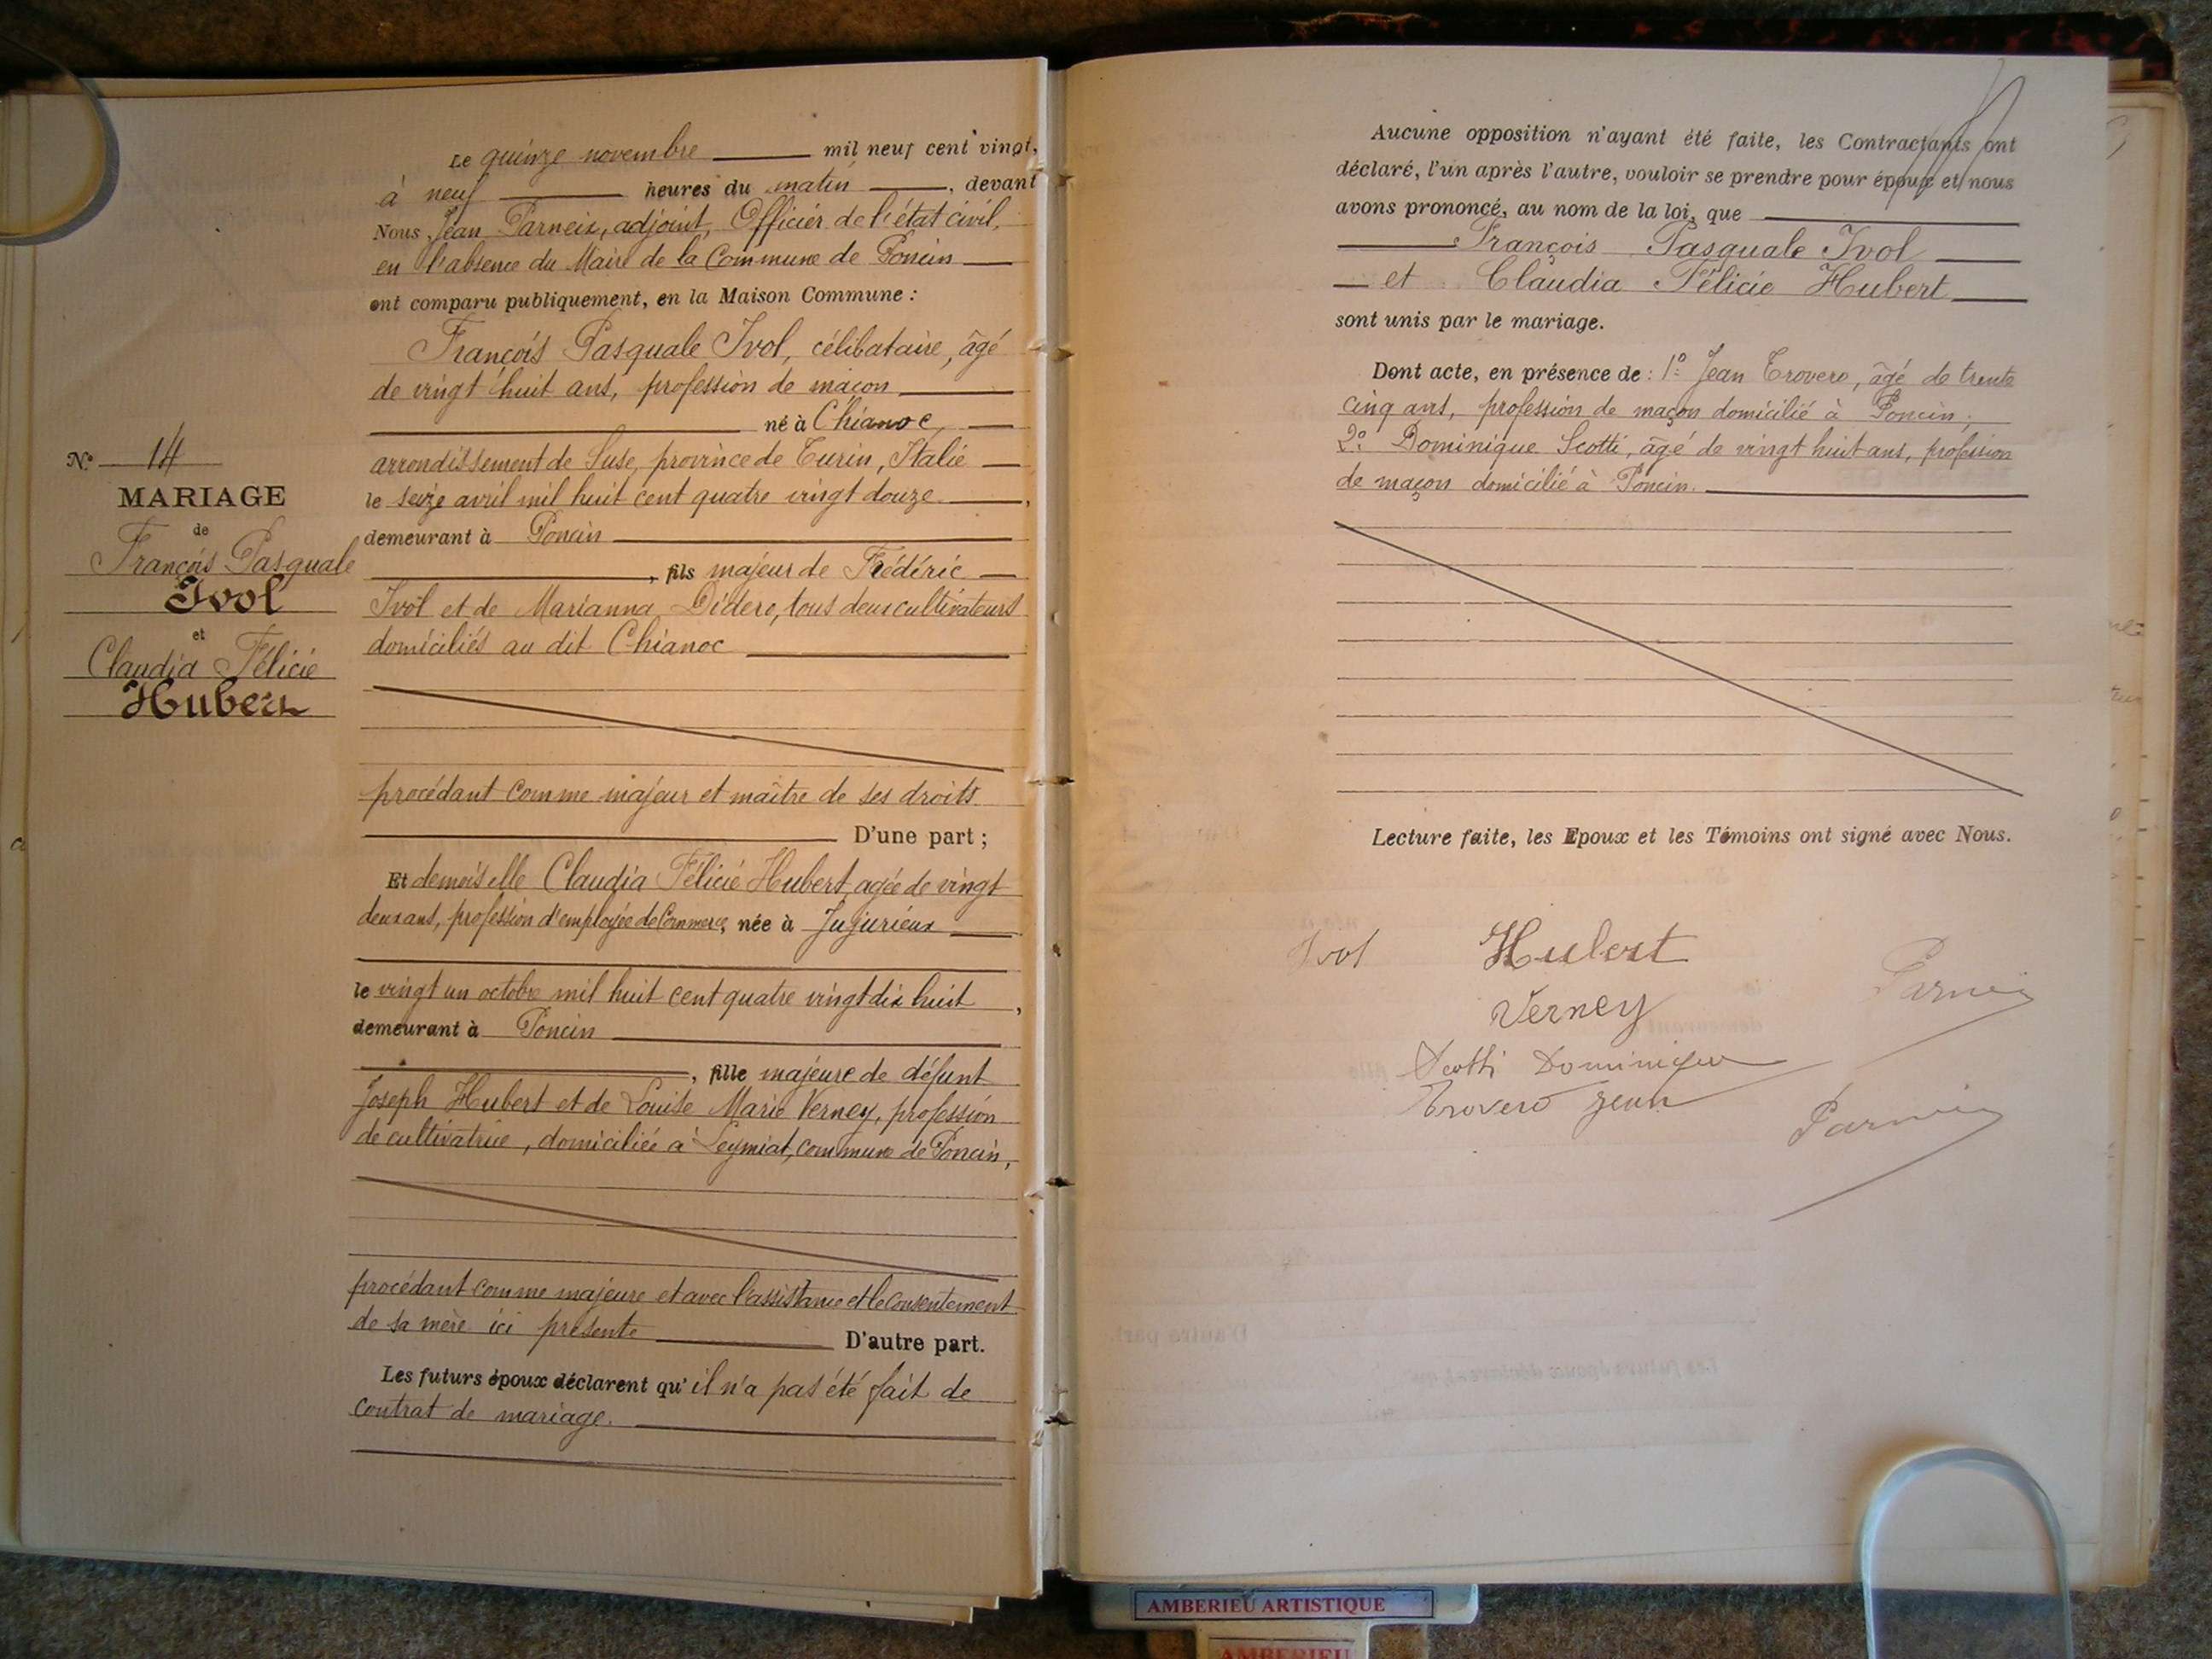 Le quinze novembre mil neuf cent vingt,
à neuf heures du matin, devant
Nous Jean Parneix, adjoint, Officier de l'état civil,
en l'absence du Maire de la Commune de Poncin
ont comparu publiquement, en la Maison Commune :
François Pasquale Ivol, célibataire, âgé
de vingt huit ans, profession de maçon
né à Chianoc,
arrondissement de Suse, province de Turin, Italie
le seize avril mil huit cent quatre vingt douze,
demeurant à Poncin
, fils majeur de Frédéric
Ivol et de Marianna Didero, tous deux cultivateurs
domiciliés au dit Chianoc
procédant comme majeur et maître de ses droits
D'une part ;
Et demoiselle Claudia Félicie Hubert, agée de vingt
deux ans, profession d'employée de Commerce, née à Jujurieux
le vingt un octobre mil huit cent quatre vingt dix huit,
demeurant à Poncin
, fille majeure de défunt
Joseph Hubert et de Louise Marie Verney, profession
de cultivatrice, domiciliée à Leymiat, commune de Poncin,
procédant comme majeure et avec l'assistance et le consentement
de sa mère ici présente D'autre part.
Les futurs époux déclarent qu'il n'a pas été fait de
contrat de mariage.
N° 14
MARIAGE
de
François Pasquale
Ivol
et
Claudia Félicie
Hubert
Aucune opposition n'ayant été faite, les Contractants ont
déclaré, l'un après l'autre, vouloir se prendre pour époux et nous
avons prononcé, au nom de la loi, que
François Pasquale Ivol
et Claudia Félicie Hubert
sont unis par le mariage.
Dont acte, en présence de : 1° Jean Trovero, âgé de trente
cinq ans, profession de maçon domicilié à Poncin ;
2° Dominique Scotti, âgé de vingt huit ans, profession
de maçon domicilié à Poncin.
Lecture faite, les Epoux et les Témoins ont signé avec Nous.
Ivol Hubert
Verney Parneix
Scotti Dominique
Trovero Jean
Parneix
AMBERIEU ARTISTIQUE
AMBERIEU